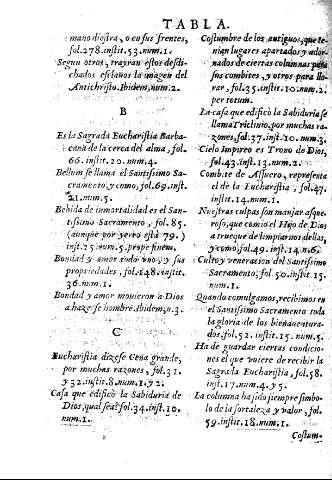 TABLA.
mano diestra, o en sus frentes,
fol.278.instit.53.num.1.
Segun otros, trayran estos desdi-
chados esclauos la imagen del
Antichristo.Ibidem,num.2.
B
Es la Sagrada Eucharistia Barba-
cana de la cerca del alma, fol.
66.instit.20.num.4.
Bellum se llama el Santissimo Sa-
cramento,y como,fol.69.inst.
21.num.5.
Bebida de inmortalidad es el San-
tissimo Sacramento, fol. 85.
(aunque por yerro està 79.)
inst.25.num.5.prope finem.
Bondad y amor todo vno,y sus
propiedades, fol.148.instit.
36.num.1.
Bondad y amor mouieron a Dios
a hazerse hombre.Ibidem,n.3.
C
Eucharistia dizese Cena grande,
por muchas razones, fol.31.
y 32.instit.8.num.1.y 2.
Casa que edificò la Sabiduria de
Dios,qual sea?fol.34.inst.10.
num.1.
Costumbre de los antiguos, que te-
nian lugares apartados y ador-
nados de ciertas columnas para
sus combites, y otros para llo-
rar, fol.35.instit.10.num.2.
per totum.
La casa que edificò la Sabiduria se
llama Triclinio, por muchas ra-
zones, fol.37.inst.10.num.3.
Cielo Impireo es Trono de Dios,
fol.43.inst.13.num.2.
Combite de Assuero, representa
el de la Eucharistia, fol.47.
instit.14.num.1.
Nuestras culpas son manjar asque-
roso,que comio el Hijo de Dios
a trueque de limpiarnos dellas,
y como,fol.49.instit.14.n.6.
Culto y veneracion del Santissimo
Sacramento; fol.50.instit.15.
num.1.
Quando comulgamos,recibimos en
el Santissimo Sacramento toda
la gloria de los bienauentura-
dos,fol.52. instit.15.num.5.
Ha de guardar ciertas condicio-
nes el que vuiere de recibir la
Sagrada Eucharistia, fol.58.
inst.17.num.4.y 5.
La columna ha sido siempre simbo-
lo de la fortaleza y valor, fol.
59.instit.18.num.1.
Costum-